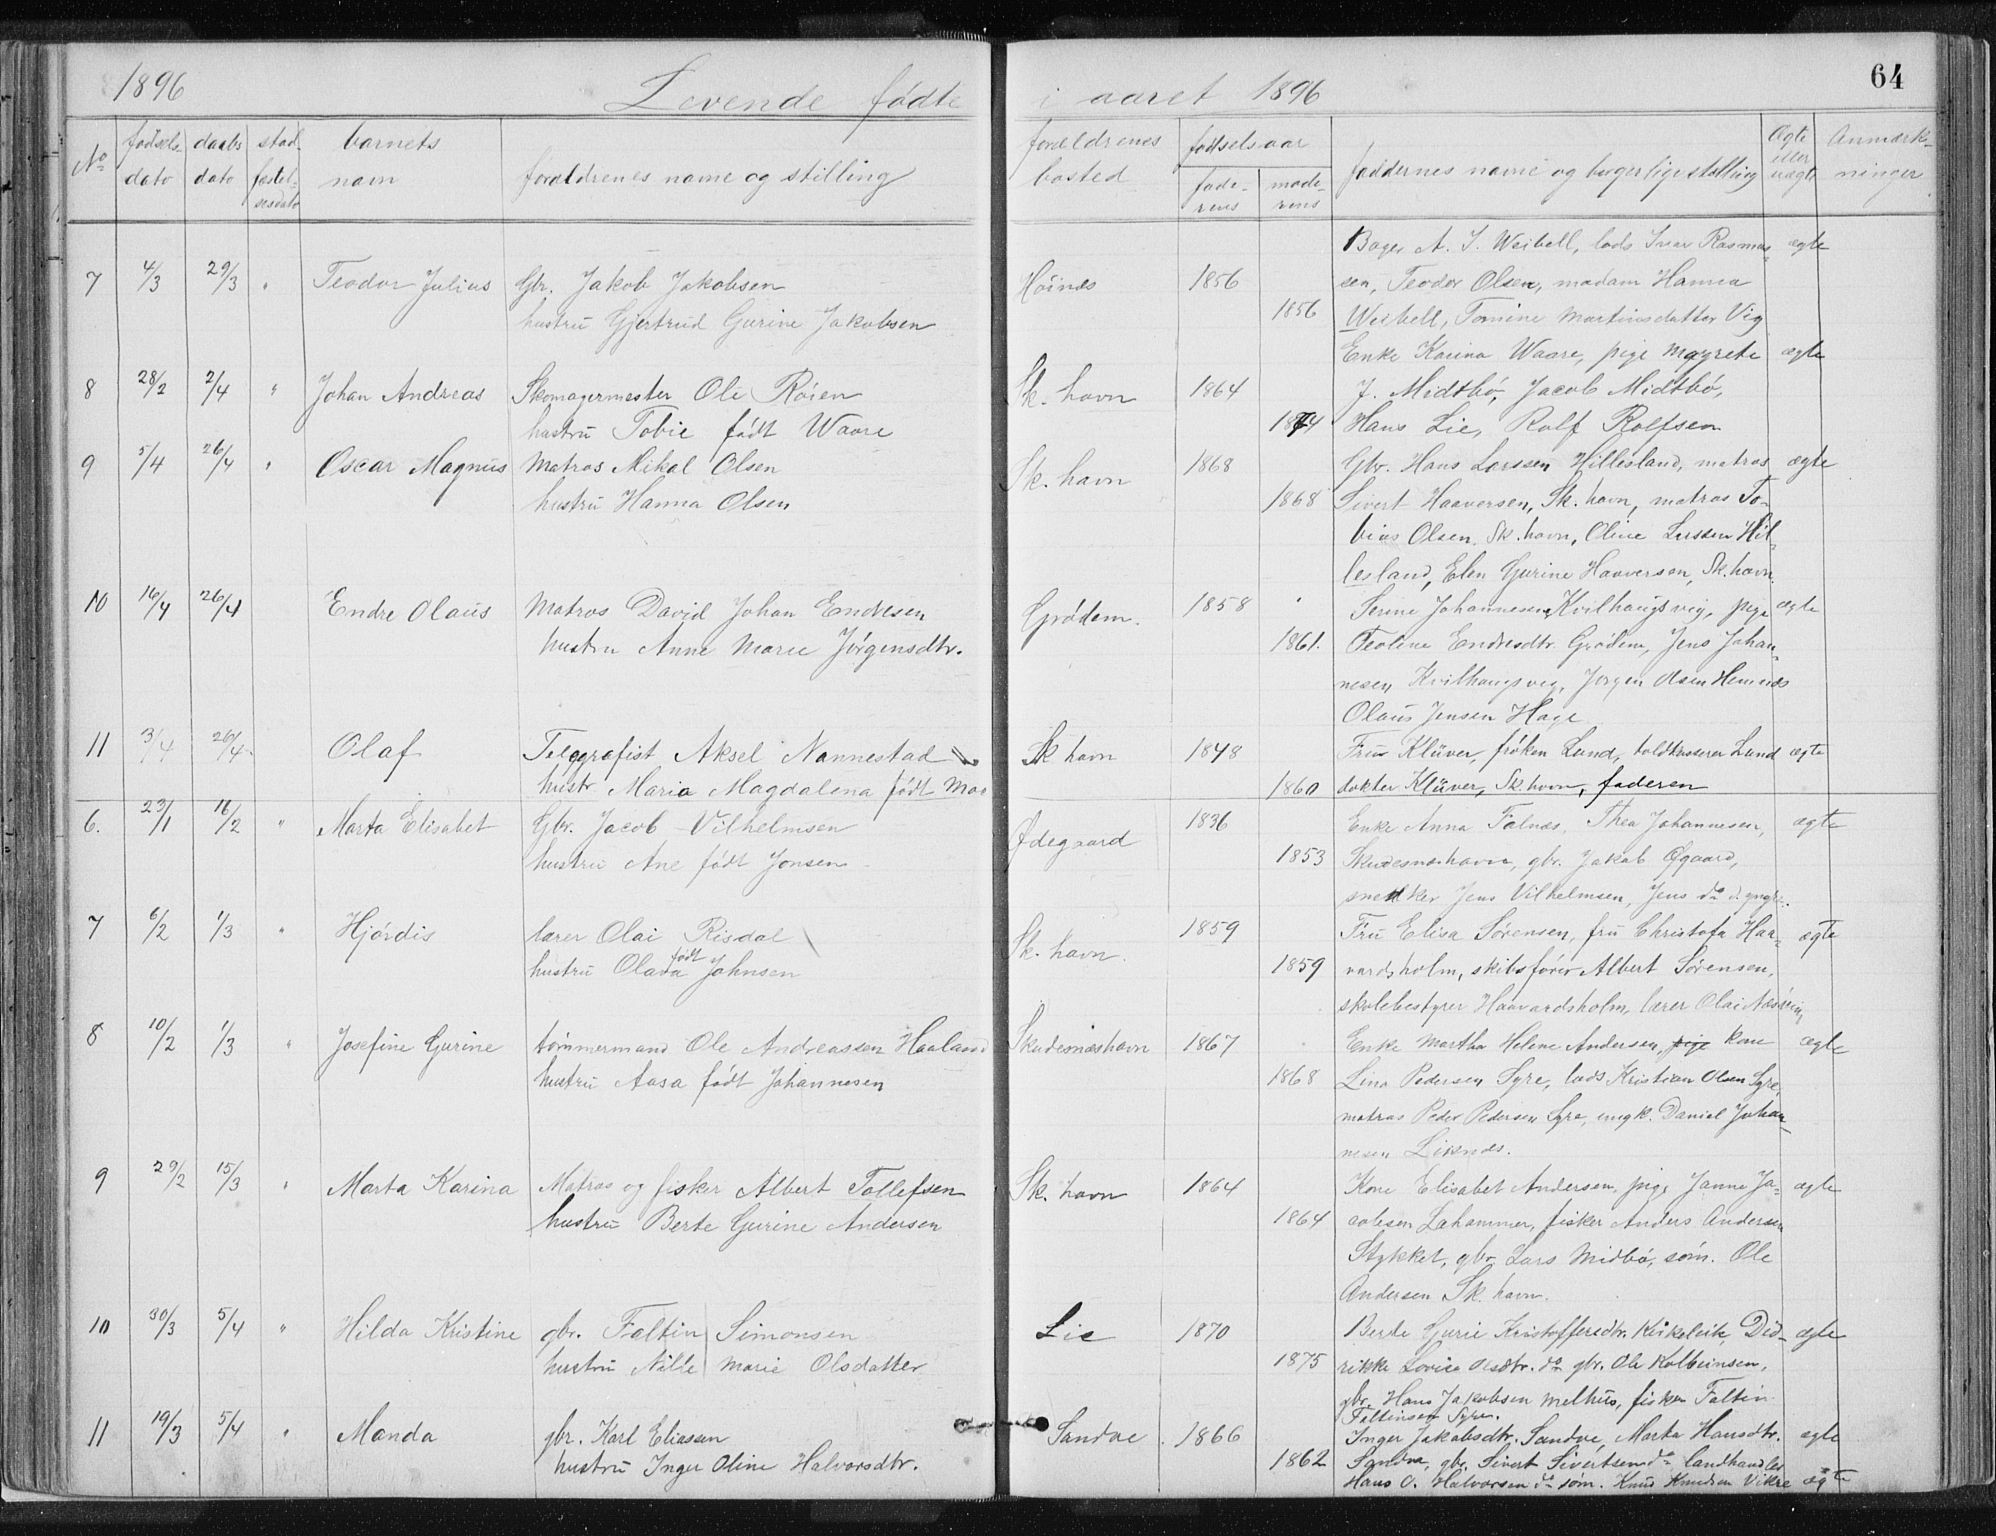 1896 Levende fødte i aaret 1896 64
No fødsels dato daabs dato stad-fæstel-sesdato barnets navn forældrenes navne og stilling forældrenes bosted fødselsaar fade-rens mode-rens faddernes navne og borgerlige stilling Ægte eller uægte Anmærk-ninger
7 4/3 29/3 " Teodor Julius Gbr. Jakob Jakobsen Höines 1856
hustru Gjertrud Gurine Jakobsen 1856
Bager A. J. Weibell, lods Ivar Rasmus- ægte
sen, Teodor Olsen, madam Hanna
Weibell, Tomine Martinsdatter Vig
8 28/2 2/4 " Johan Andreas Skomagermester Ole Röien Sk. havn 1864
hustru Tobie født Waare 1874
Enke Karina Waare, pige Magrete ægte
J. Midtbö, Jacob Midtbö,
Hans Lie, Rolf Rolfsen
9 5/4 26/4 " Oscar Magnus Matros Mikal Olsen Sk. havn 1868
hustru Hanna Olsen 1868
Gbr. Hans Larssen Hillesland, matros ægte
Sivert Haaversen, Sk. havn, matros To-
bias Olsen. Sk. havn, Oline Larssen Hil-
lesland, Elen Gurine Haaversen, Sk. havn.
10 16/4 26/4 Endre Olaus Matros David Johan Endresen Grödem. 1858
hustru Anne Marie Jörgensdtr. 1861.
Serine Johannesen Kvilhaugsvig, pige ægte
Teoline Endresdtr. Grödem, Jens Johan-
nesen Kvilhaugsvig, Jörgen Olsen Hemnes
Olaus Jensen Hage
11 3/4 26/4 Olaf Telegrafist Aksel Nannestad Sk havn 1848
hustr. Maria Magdalena født Moe 1860
Fru Klüver, fröken Lund, toldkasserer Lund ægte
dokter Klüver, Sk. havn, faderen
6. 23/1 16/2 " Marta Elisabet Gbr. Jacob Vilhelmsen Ødegaard 1836
hustru Ane født Jonsen 1853
Enke Anna Falnes, Thea Johannesen, ægte
Skudesneshavn, gbr. Jakob Øgaard,
snedker Jens Vilhelmsen, Jens do d. yngre.
7 6/2 1/3 " Hjördis lærer Olai Risdal Sk. havn. 1859
hustru Olava født Johnsen 1859
Fru Elisa Sørensen, fru Christofa Haa- ægte
vardsholm, skibsfører Albert Sørensen,
skolebestyrer Haavardsholm, lærer Olai
8 10/2 1/3 " Josefine Gurine tömmermand Ole Andreassen Haaland Skudesneshavn 1867
hustru Aasa født Johannesen 1868
Enke Martha Helene Andersen, pige Kone ægte
Lina Pedersen Syre, lods Kristian Olsen Syre,
matros Peder Pedersen Syre, ungk. Daniel Johan-
nesen Liknes.
9 29/2 15/3 " Marta Karina Matros og fisker Albert Tollefsen Sk. havn 1864
hustru Berte Gurine Andersen 1864
Kone Elisabet Andersen, pige Janne Ja- ægte
cobsen Lahammer, fisker Anders Andersen
Stykket, gbr. Lars Midbö, søm. Ole
Andersen Sk. havn.
10 30/3 5/4 " Hilda Kristine gbr. Faltin Simonsen Lie 1870
hustru Nille Marie Olsdatter 1875
Berte Gurie Kristoffersdtr. Kirkeleite, Did- ægte
rikke Lovise Olsdtr. do gbr. Ole Kolbeinsen,
gbr. Hans Jakobsen Melhus, fisker Faltin
Faltinsen Syre.
11 19/3 5/4 " Manda gbr. Karl Eliassen Sandve. 1866
hustru Inger Oline Halvorsdtr. 1862
Inger Jakobsdtr. Sandve, Marta Hansdtr. ægte
Sandve, gbr. Sivert Sivertsen do landhandler
Hans O. Halvorsen do søm. Knud Knudsen Vikre ægte